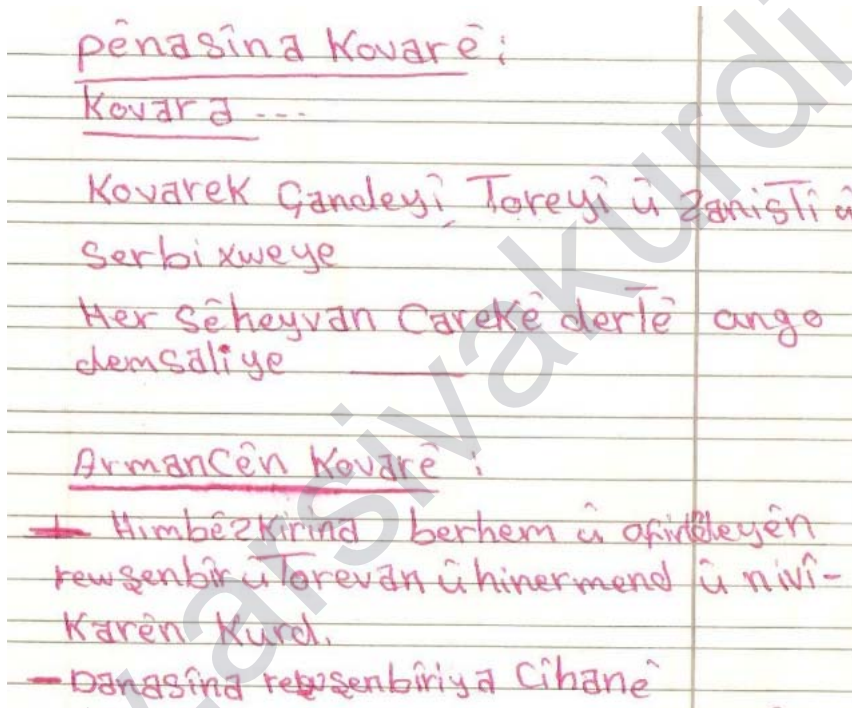 pênasîna Kovarê:
Kovara ...
Kovarek Çandeyî, Toreyî û zanistî û
serbixweye
Her sêheyvan Carekê dertê ango
demsaliye
Armancên Kovarê:
Himbêzkirina berhem û afirîdeyên
rewşenbîr û Torevan û hinermend û nivî-
Karên Kurd.
- Danasîna rewşenbîriya Cîhanê
arsivakurdi